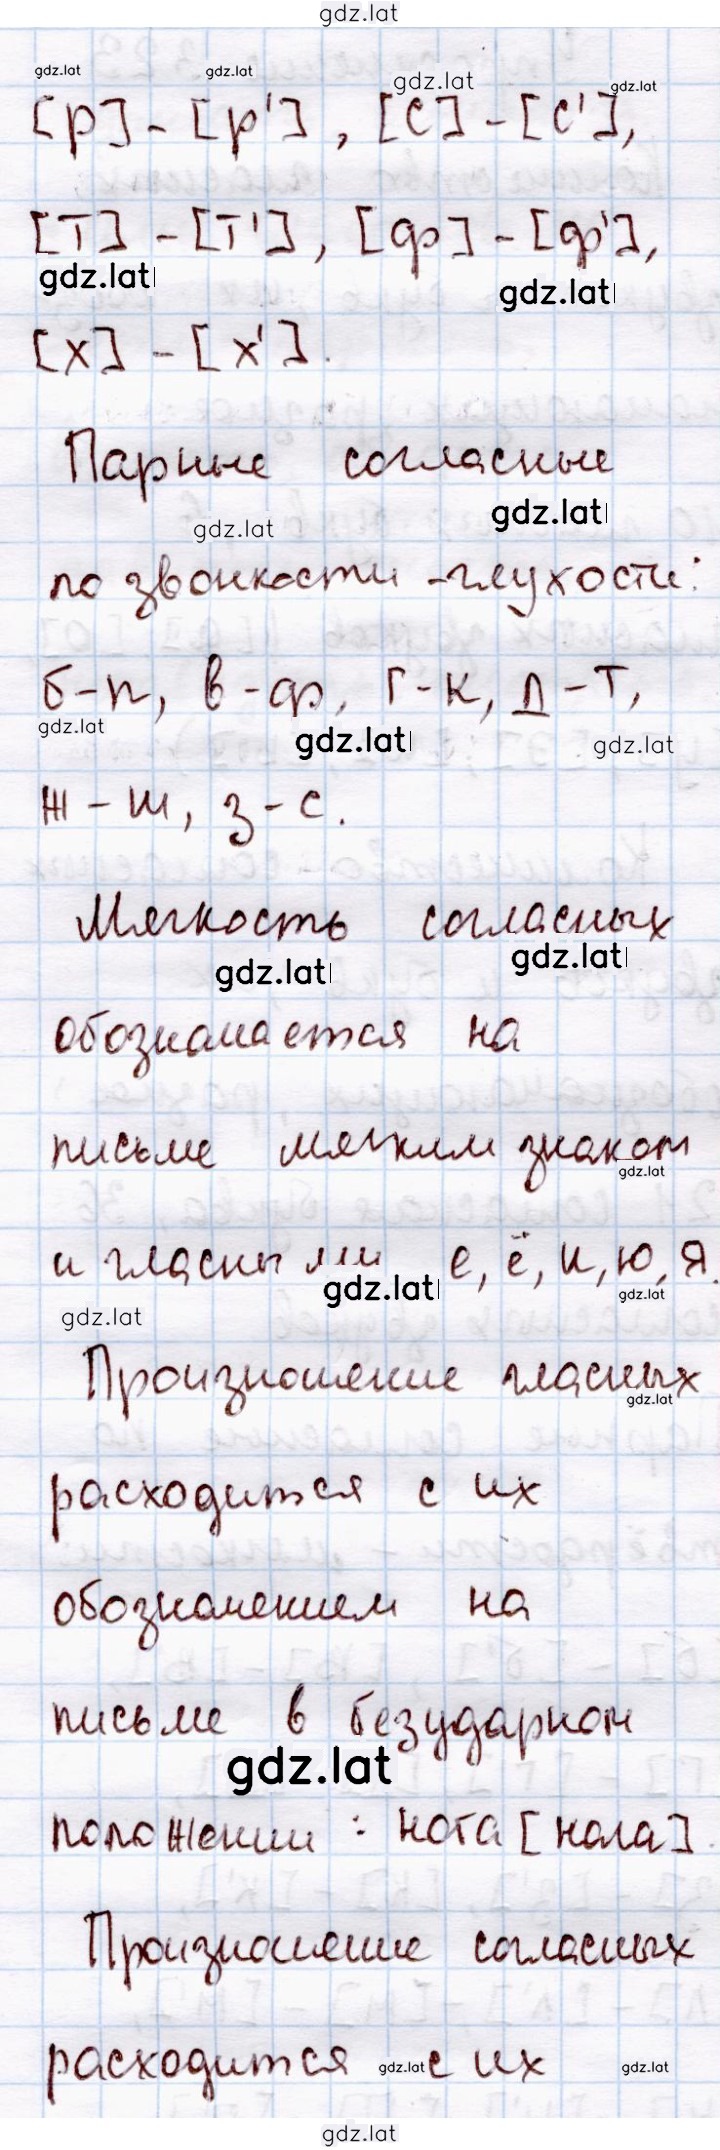 gdz.lat
gdz.lat gdz.lat gdz.lat gdz.lat
[р] - [р'], [с] - [с'],
[т] - [т'], [ф] - [ф'],
gdz.lat gdz.lat
[х] - [х'].
Парные согласные
gdz.lat gdz.lat
по звонкости - глухости:
б - п, в - ф, г - к, д - т,
gdz.lat gdz.lat gdz.lat
ж - ш, з - с.
Мягкость согласных
gdz.lat gdz.lat
обозначается на
письме мягким знаком
gdz.lat
и гласными е, ё, и, ю, я.
gdz.lat gdz.lat gdz.lat
Произношение гласных
gdz.lat
расходится с их
обозначением на
письме в безударном
gdz.lat
положении: нота [        ].
Произношение согласных
расходится gdz.lat с их gdz.lat
gdz.lat